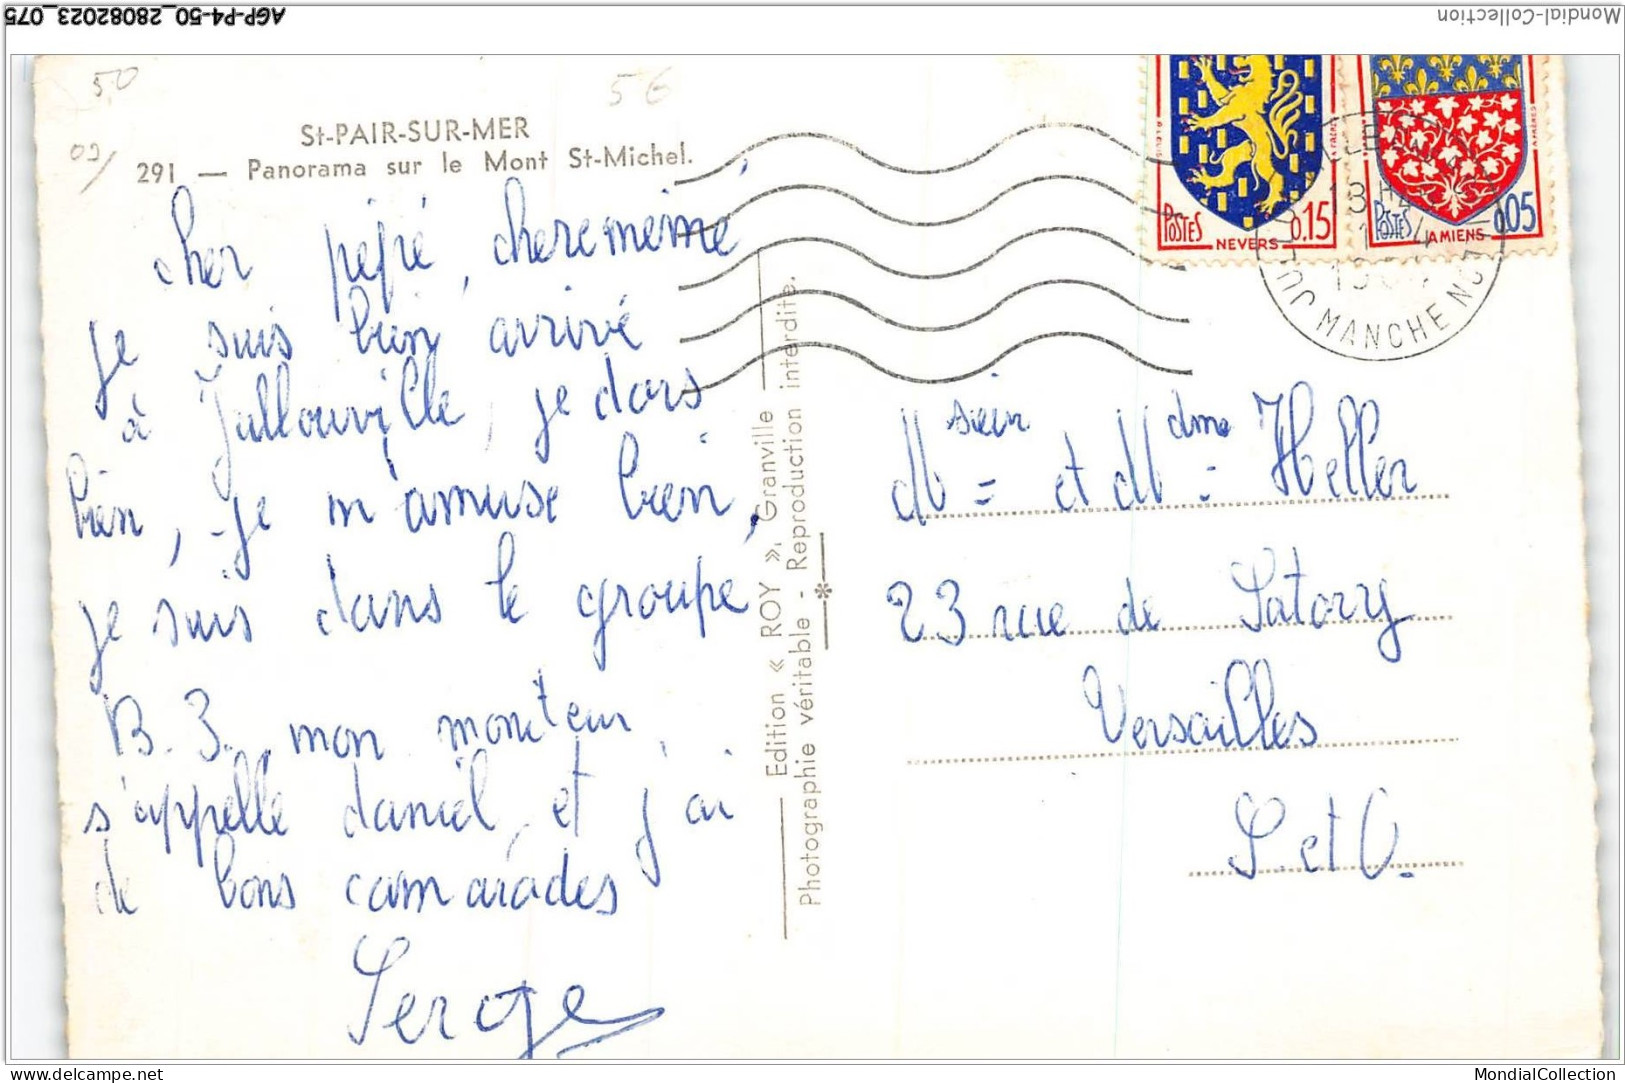 AGP-P4-50_28082023_075
Mondial-Collection
50
56
St-PAIR-SUR-MER
291 — Panorama sur le Mont St-Michel.
cher pépé, chere mémé
je suis bien arrivé
à Jullouville, je dors
bien, je m'amuse bien,
je suis dans le groupe
B.3. mon moniteur
s'appelle daniel, et j'ai
de bons camarades
Serge
Edition « ROY », Granville
Photographie véritable - Reproduction interdite.
POSTES NEVERS 0.15
POSTES AMIENS 0.05
MANCHE
Msieur = et Mdme = Heller
23 rue de Satory
Versailles
S. et O.
www.delcampe.net
MondialCollection